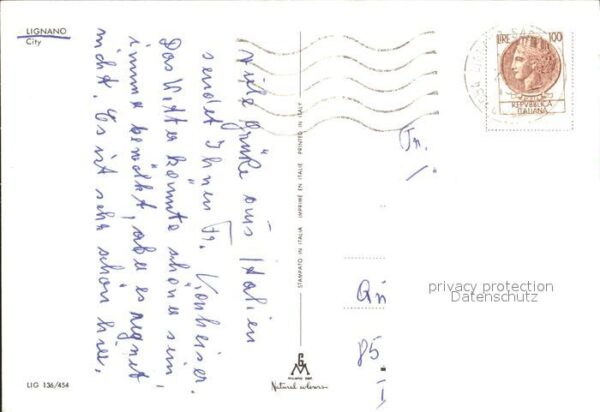 LIGNANO
City
Viele Grüße aus Italien
sendet Ihnen Fr.
Das Wetter könnte schöner sein,
immer bewölkt, aber es regnet
nicht. Es ist sehr schön hier.
STAMPATO IN ITALIA IMPRIMÉ EN ITALIE PRINTED IN ITALY
LIRE 100
REPVBBLICA
ITALIANA
Fr.
An
85
I
privacy protection
Datenschutz
LIG 136/454
Natural colours